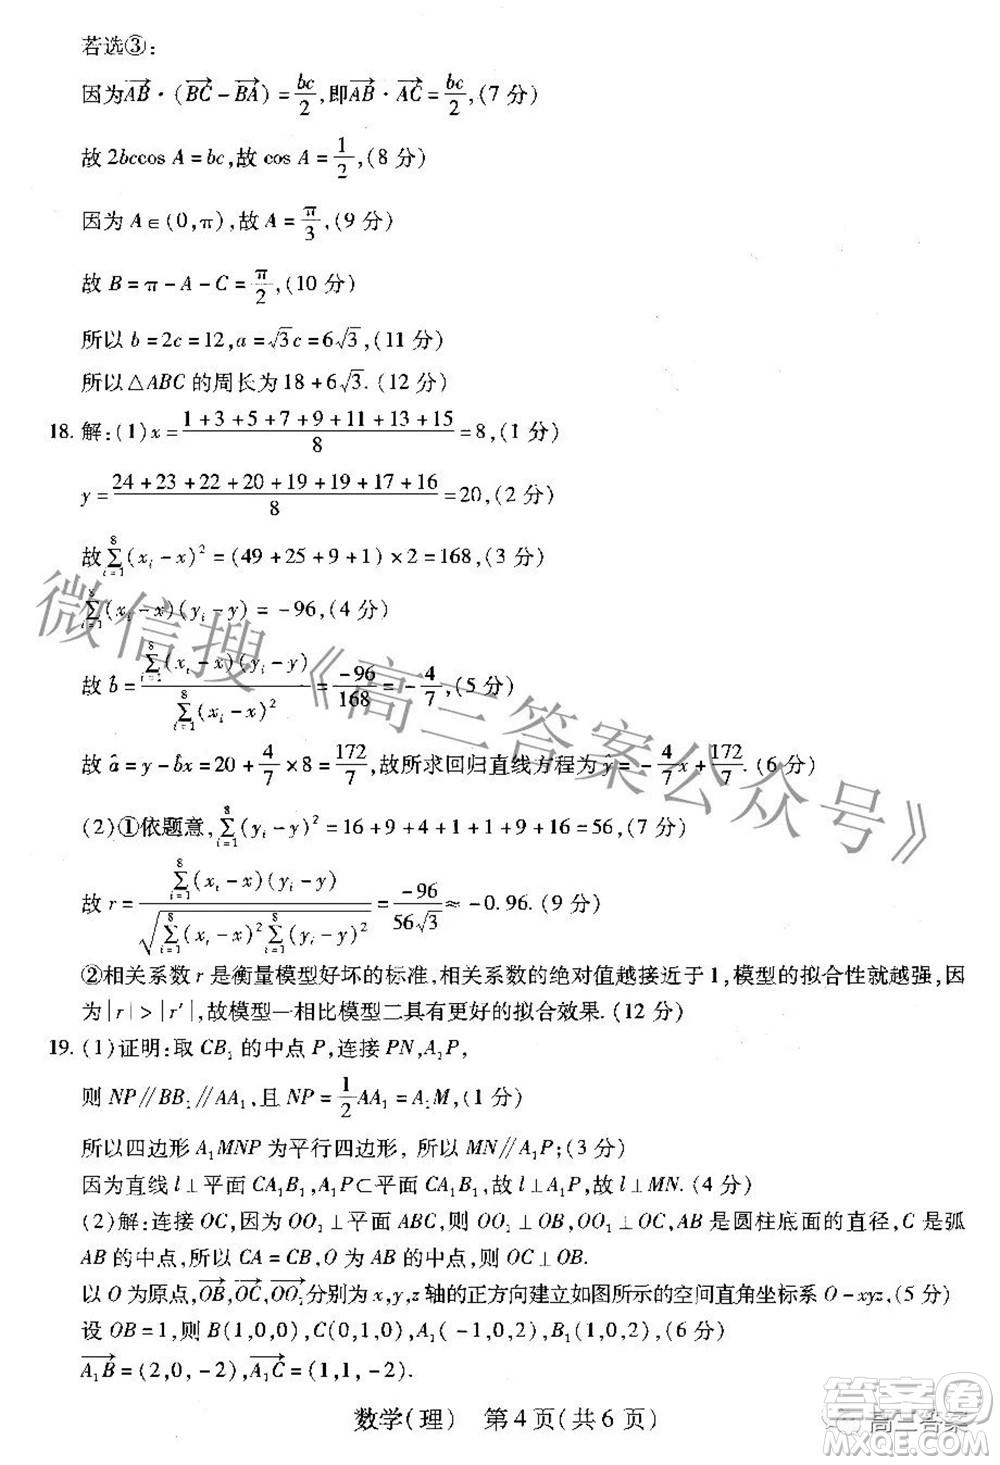 若选③:
因为$\overrightarrow{AB}\cdot(\overrightarrow{BC}-\overrightarrow{BA})=\frac{bc}{2}$,即$\overrightarrow{AB}\cdot\overrightarrow{AC}=\frac{bc}{2}$,(7 分)
故 2bccos A = bc,故 cos A = $\frac{1}{2}$,(8 分)
因为 A∈(0,π),故 A = $\frac{π}{3}$,(9 分)
故 B = π - A - C = $\frac{π}{2}$,(10 分)
所以 b = 2c = 12, a = $\sqrt{3}$c = 6$\sqrt{3}$,(11 分)
所以△ABC 的周长为 18 + 6$\sqrt{3}$. (12 分)
18. 解:(1) x = $\frac{1+3+5+7+9+11+13+15}{8}$ = 8,(1 分)
y = $\frac{24+23+22+20+19+19+17+16}{8}$ = 20,(2 分)
故 $\sum_{i=1}^{8}(x_i-x)^2$ = (49 + 25 + 9 + 1) × 2 = 168,(3 分)
$\sum_{i=1}^{8}(x_i-x)(y_i-y)$ = -96,(4 分)
故 $\hat{b}=\frac{\sum_{i=1}^{8}(x_i-x)(y_i-y)}{\sum_{i=1}^{8}(x_i-x)^2}=\frac{-96}{168}=-\frac{4}{7}$,(5 分)
故 $\hat{a}=y-\hat{b}x=20+\frac{4}{7}×8=\frac{172}{7}$,故所求回归直线方程为 $\hat{y}=-\frac{4}{7}x+\frac{172}{7}$. (6 分)
(2)①依题意, $\sum_{i=1}^{8}(y_i-y)^2$ = 16 + 9 + 4 + 1 + 1 + 9 + 16 = 56,(7 分)
故 $r=\frac{\sum_{i=1}^{8}(x_i-x)(y_i-y)}{\sqrt{\sum_{i=1}^{8}(x_i-x)^2\sum_{i=1}^{8}(y_i-y)^2}}=\frac{-96}{56\sqrt{3}}$ ≈ -0.96. (9 分)
②相关系数 r 是衡量模型好坏的标准,相关系数的绝对值越接近于 1,模型的拟合性就越强,因
为|r| > |r′|,故模型一相比模型二具有更好的拟合效果. (12 分)
19. (1)证明:取 CB₁ 的中点 P,连接 PN,A₁P,
则 NP∥BB₁∥AA₁,且 NP = $\frac{1}{2}$AA₁ = A₁M,(1 分)
所以四边形 A₁MNP 为平行四边形, 所以 MN∥A₁P;(3 分)
因为直线 l⊥平面 CA₁B₁,A₁P⊂平面 CA₁B₁,所以 l⊥A₁P,故 l⊥MN. (4 分)
(2)解:连接 OC,因为 OO₁⊥平面 ABC,则 OO₁⊥OB,OO₁⊥OC,AB 是圆柱底面的直径,C 是弧
AB 的中点,所以 CA = CB,O 为 AB 的中点,则 OC⊥OB.
以 O 为原点,$\overrightarrow{OB}$,$\overrightarrow{OC}$,$\overrightarrow{OO_1}$分别为 x,y,z 轴的正方向建立如图所示的空间直角坐标系 O - xyz,(5 分)
设 OB = 1,则 B(1,0,0),C(0,1,0),A₁(-1,0,2),B₁(1,0,2),(6 分)
$\overrightarrow{A_1B}$ = (2,0,-2),$\overrightarrow{A_1C}$ = (1,1,-2).
数学(理) 第 4 页(共 6 页)
微信搜《高三答案公众号》
答案圈
高三答案
MXQE.COM